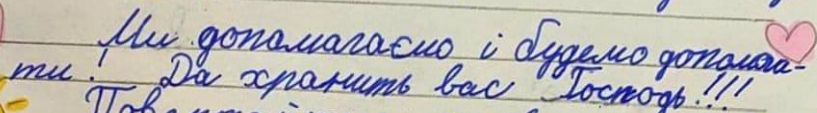 Ми допомагаємо і будемо допомага-
ти! Да хранить вас Господь!!!